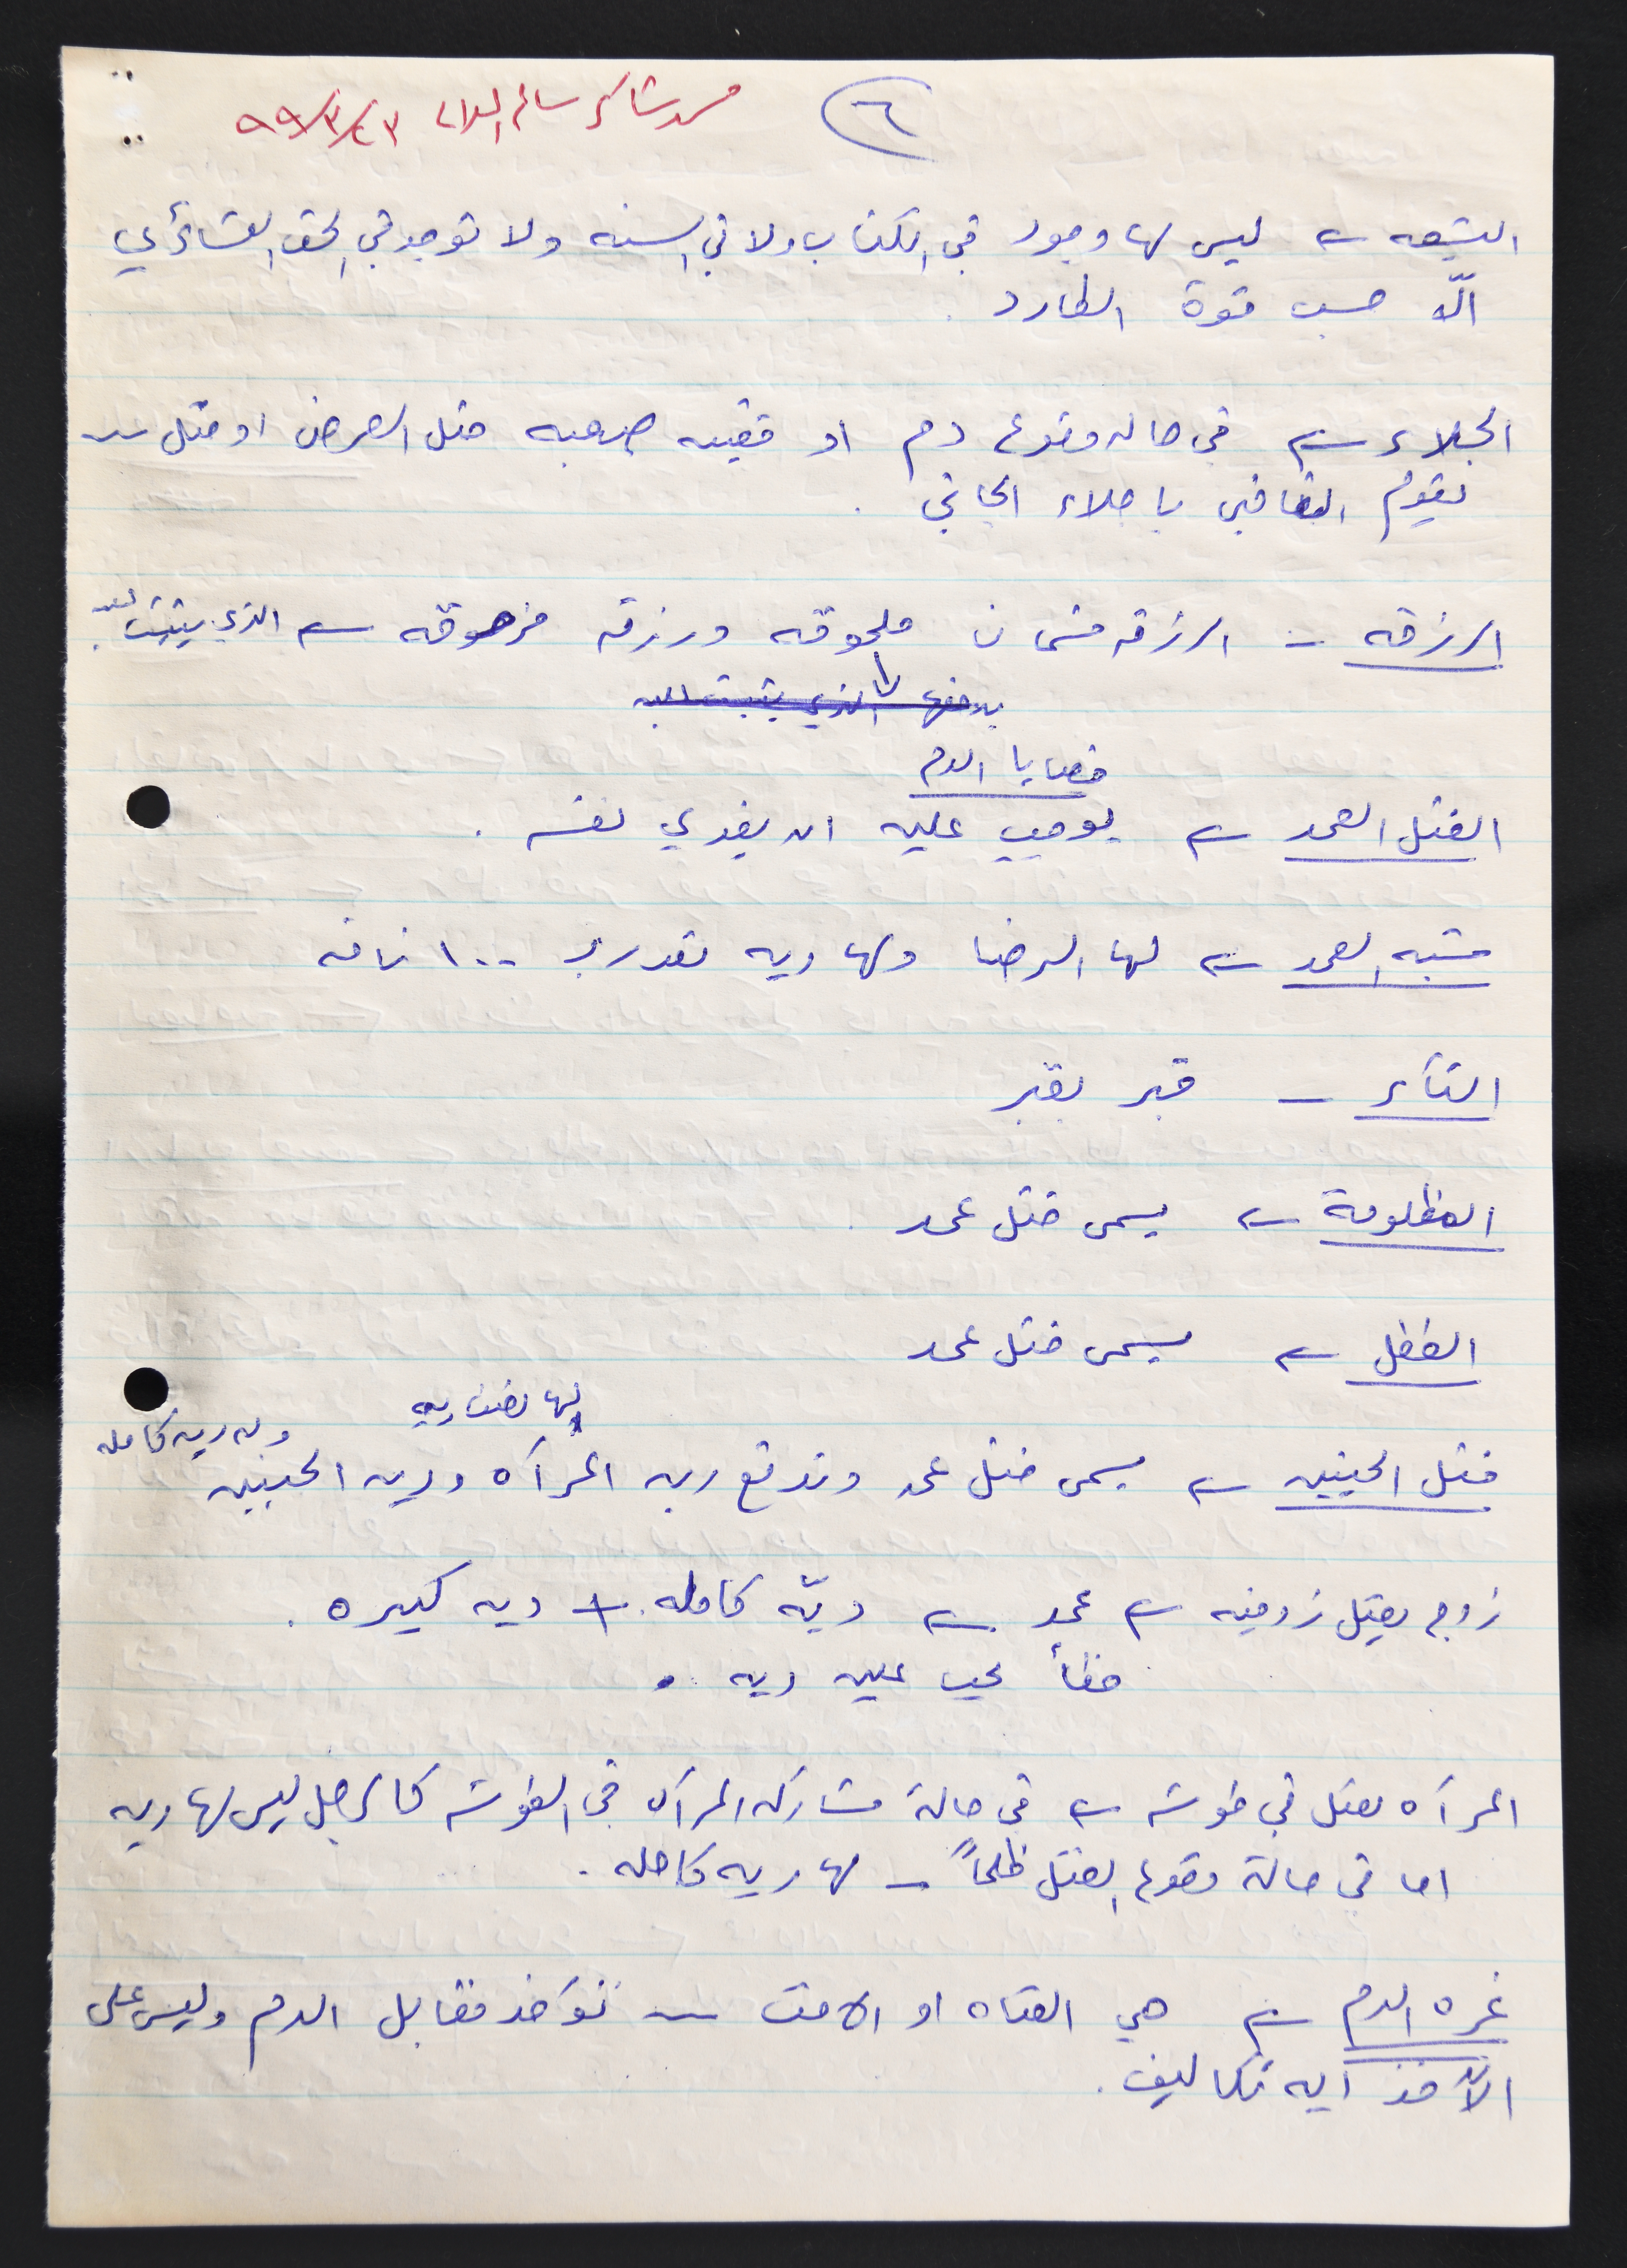 ٦
٩٩/٣/٢٣
التبعه ← ليس لها وجود في الكتاب ولا في السنه ولا توجد في الحق العشائري
الّا حسب قوة الطارد .
الجلاء ← في حاله وقوع دم او قضيه صعبه مثل العرض او قتل
يقوم القاضي باجلاء الجاني .
الرزقه - الرزقه قسمان ملحوقه ورزقه مزهوقه ← الذي يثبت
يدفعها الذي يثبت عليه
قضايا الدم
القتل العمد ← يوجب عليه ان يفدي نفسه .
شبه العمد ← لها الرضا ولها ديه تقدر بـ ١٠٠ ناقه
الثأر - قبر بقبر
المظلومة ← يسمى قتل عمد .
الطفل ← يسمى قتل عمد
لها نصف ديه
وله ديه كامله
قتل الجنين ← يسمى قتل عمد وتدفع ديه المرآه وديه الجنين
زوج يقتل زوجته ← عمد ← ديّه كامله + ديه كبيره .
خطأ يجب عليه ديه .
المرآه تقتل في طوشه ← في حالة مشاركه المرآه في الطوشه كالرجل ليس لها ديه
اما في حالة وقوع القتل ظلماً - لها ديه كامله .
غره الدم ← هي الفتاه او الاخت - تؤخذ مقابل الدم وليس على
الآخذ آيه تكاليف .